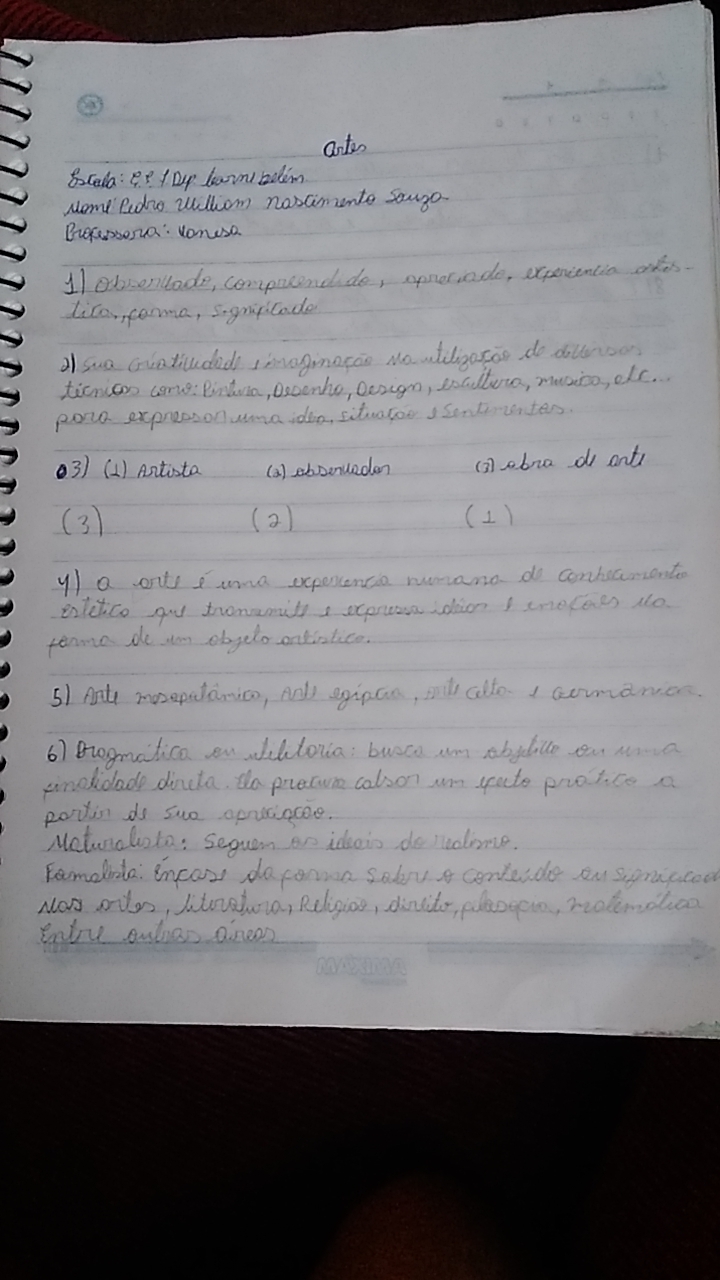 Artes
Escola: E.E / Dep
Nome: Pedro William nascimento Souza
Professora: Vanesa
1) observado, compreendido, apreciado, experiencia artis-
tica, forma, significado
2) Sua criatividade e imaginação na utilização de diversas
técnicas como: Pintura, Desenho, Design, escultura, musica, etc...
para expressar uma ideia, situação e sentimentos.
03) (1) Artista (2) observador (3) obra de arte
(3) (2) (1)
4) a arte é uma experiencia humana de conhecimento
estético que transmite e expressa ideias e emoções na
forma de um objeto artístico.
5) Arte mesopotâmica, Arte egípcia, arte celta e Germânica.
6) Pragmática ou utilitaria: busca um objetivo ou uma
finalidade direta. Ela procura um efeito prático a
partir de sua apreciação.
Naturalista: Seguem os ideais do realismo.
Formalista: Ênfase da forma sobre o conteúdo ou significad
Nas artes, literatura, Religião, direito, filosofia, matemática
Entre outras áreas
MÁXIMA